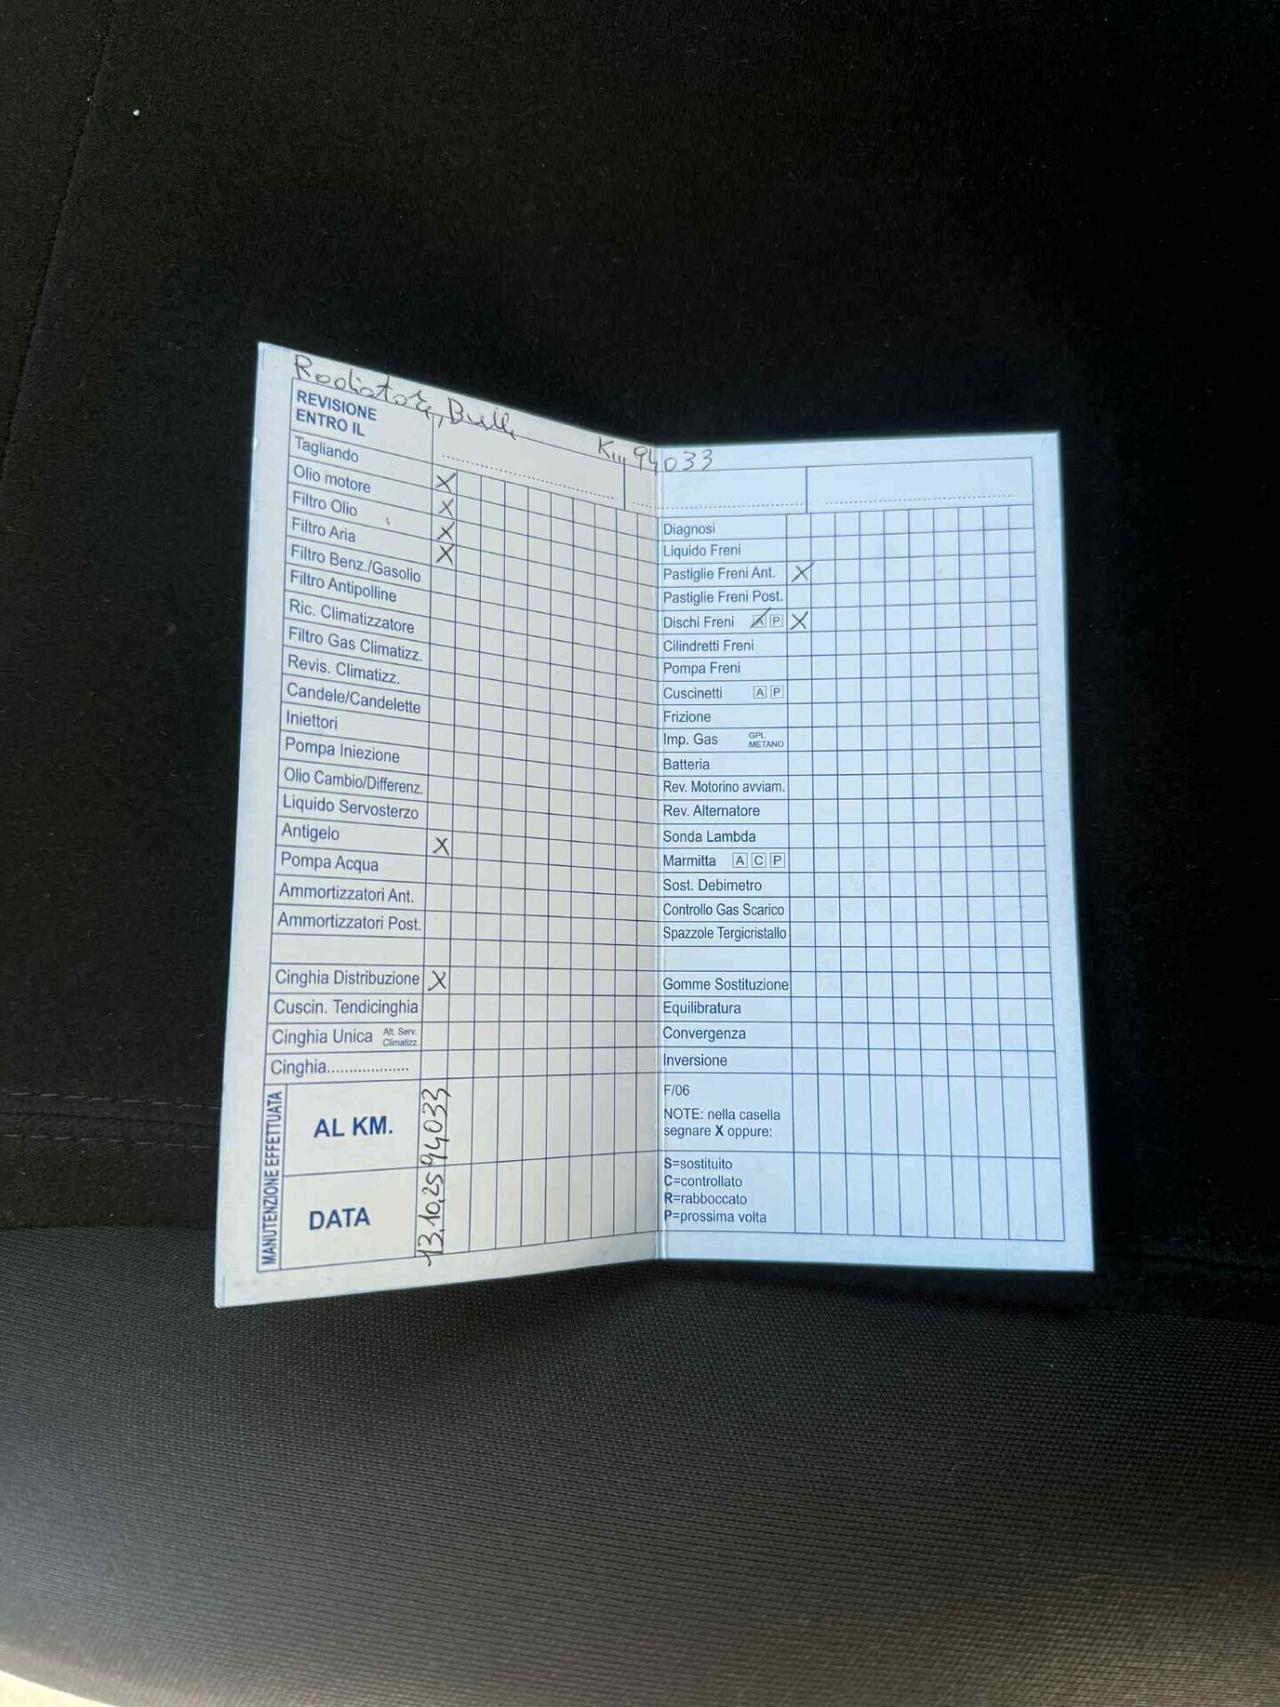 Radiatore, Bulli Km 94033
REVISIONE
ENTRO IL
Tagliando
Olio motore X
Filtro Olio X
Filtro Aria X
Filtro Benz./Gasolio X
Filtro Antipolline
Ric. Climatizzatore
Filtro Gas Climatizz.
Revis. Climatizz.
Candele/Candelette
Iniettori
Pompa Iniezione
Olio Cambio/Differenz.
Liquido Servosterzo
Antigelo X
Pompa Acqua
Ammortizzatori Ant.
Ammortizzatori Post.
Cinghia Distribuzione X
Cuscin. Tendicinghia
Cinghia Unica Alt. Serv. Climatizz.
Cinghia...................
MANUTENZIONE EFFETTUATA
AL KM. 94033
DATA 13,10,25
Diagnosi
Liquido Freni
Pastiglie Freni Ant. X
Pastiglie Freni Post.
Dischi Freni A P X
Cilindretti Freni
Pompa Freni
Cuscinetti A P
Frizione
Imp. Gas GPL METANO
Batteria
Rev. Motorino avviam.
Rev. Alternatore
Sonda Lambda
Marmitta A C P
Sost. Debimetro
Controllo Gas Scarico
Spazzole Tergicristallo
Gomme Sostituzione
Equilibratura
Convergenza
Inversione
F/06
NOTE: nella casella
segnare X oppure:
S=sostituito
C=controllato
R=rabboccato
P=prossima volta